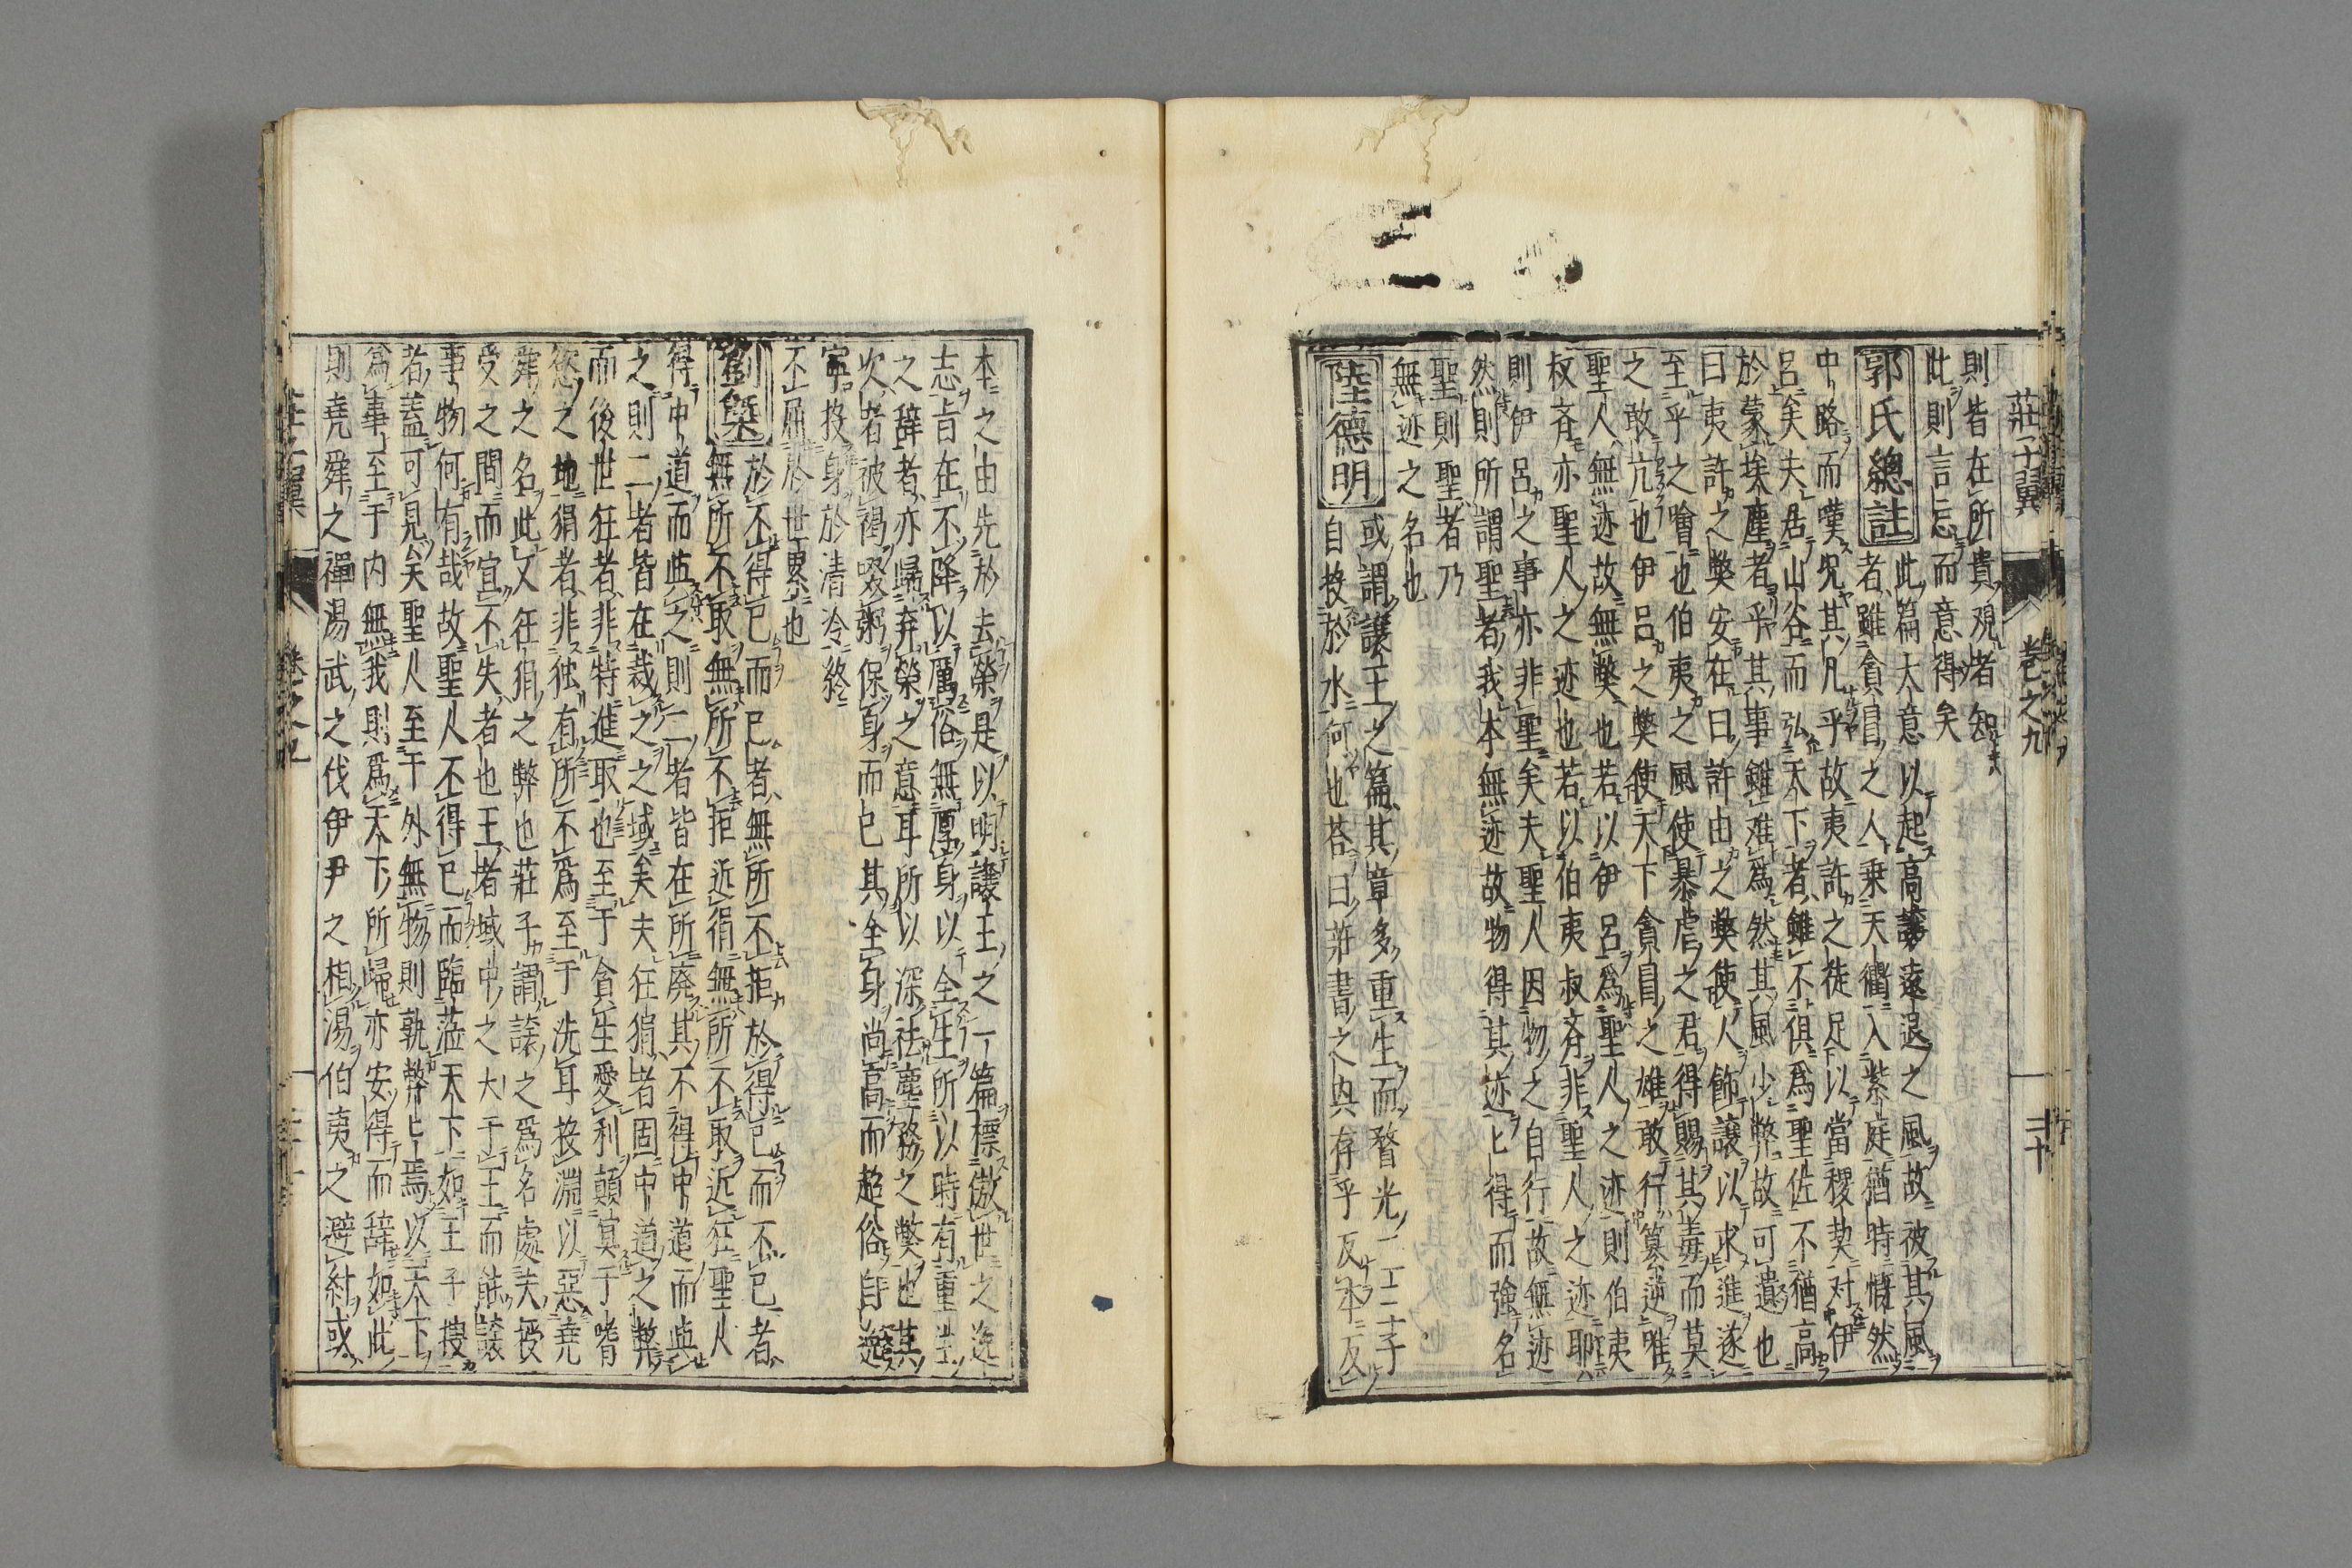 莊子翼 卷之九 三十
則皆在所貴觀者知
此則言忘而意得矣
郭氏總註 此篇大意以起高讓遠退之風故被其風
者雖貪冒之人乘天衢入紫庭猶時慨然
中路而嘆況其凡乎故夷許之徒足以當稷契对伊
呂矣夫居山谷而弘天下者雖不俱爲聖佐不猶高
於蒙埃塵者乎其事雖难爲然其風少弊故可遺也
曰夷許之弊安在曰許由之弊使人飾讓以求進遂
至乎之噲也伯夷之風使暴虐之君得賜其毒而莫
之敢亢也伊呂之弊使天下貪冒之雄敢行篡逆唯
聖人無迹故無弊也若以伊呂爲聖人之迹則伯夷
叔斉亦聖人之迹也若以伯夷叔斉非聖人之迹耶
則伊呂之事亦非聖矣夫聖人因物之自行故無迹
然則所謂聖者我本無迹故物得其迹〻得而強名
聖則聖者乃
無迹之名也
陸德明 或謂讓王之篇其章多重生而瞀光二三子
自投於水何也荅曰莊書之興存乎反本反
本之由先於去榮是以明讓王之一篇標傲世之逸
志旨在不降以厲俗無厚身以全生所以時有重生
之辞者亦歸弃榮之意耳所以深祛塵務之弊也其
次者被褐啜粥保身而已其全身尚高而超俗自逸
寧投身於清泠終
不屈於世累也
劉槩 於不得已而已者無所不拒於得已而不已者
無所不取無所不拒近狷無所不取近狂聖人
得中道而與之則二者皆在所廃其不得中道而與
之則二者皆在裁之之域矣夫狂狷者固中道之弊
而後世狂者非特進取也至于貪生愛利顛冥于嗜
慾之地狷者非独有所不爲至于洗耳投淵以惡堯
舜之名此又狂狷之弊也莊子謂讓之爲名處夫授
受之間而宜不失者也王者域中之大于王而能讓
事物何有哉故聖人不得已而臨莅天下如王子搜
者蓋可見矣聖人至于外無物則孰弊〻焉以天下
爲事至于内無我則爲天下所歸亦安得而辞如此
則堯舜之禪湯武之伐伊尹之相湯伯夷之避紂或
莊子翼 卷之九